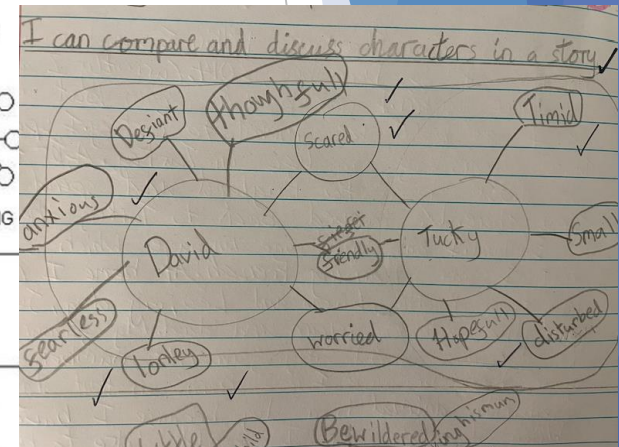 I can compare and discuss characters in a story
Defiant
thoughfull
Scared
Timid
anxious
David
friendly
Tucky
Small
fearless
lonley
worried
Hopefull
disturbed
Little
Bewildered